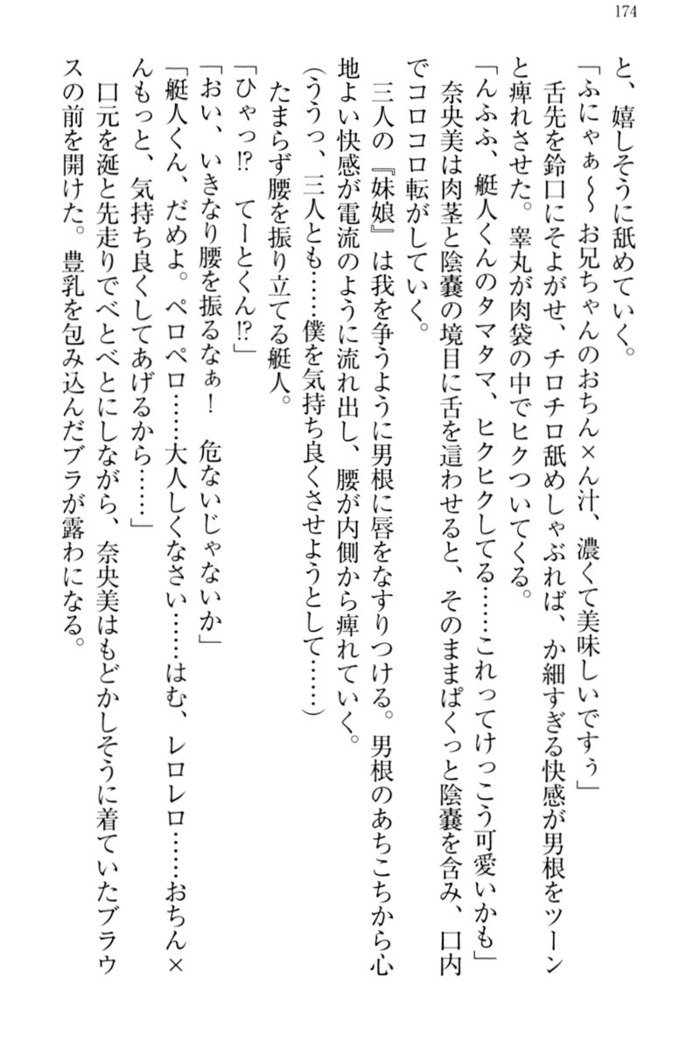 174
と、嬉しそうに舐めていく。
「ふにゃぁ〜〜お兄ちゃんのおちん×ん汁、濃くて美味しいですぅ」
舌先を鈴口にそよがせ、チロチロ舐めしゃぶれば、か細すぎる快感が男根をツーン
と痺れさせた。睾丸が肉袋の中でヒクついてくる。
「んふふ、艇人くんのタマタマ、ヒクヒクしてる……これってけっこう可愛いかも」
奈央美は肉茎と陰嚢の境目に舌を這わせると、そのままぱくっと陰嚢を含み、口内
でコロコロ転がしていく。
三人の『妹娘』は我を争うように男根に唇をなすりつける。男根のあちこちから心
地よい快感が電流のように流れ出し、腰が内側から痺れていく。
（ううっ、三人とも……僕を気持ち良くさせようとして……）
たまらず腰を振り立てる艇人。
「ひゃっ!?　てーとくん!?」
「おい、いきなり腰を振るなぁ！　危ないじゃないか」
「艇人くん、だめよ。ペロペロ……大人しくなさい……はむ、レロレロ……おちん×
んもっと、気持ち良くしてあげるから……」
口元を涎と先走りでべとべとにしながら、奈央美はもどかしそうに着ていたブラウ
スの前を開けた。豊乳を包み込んだブラが露わになる。